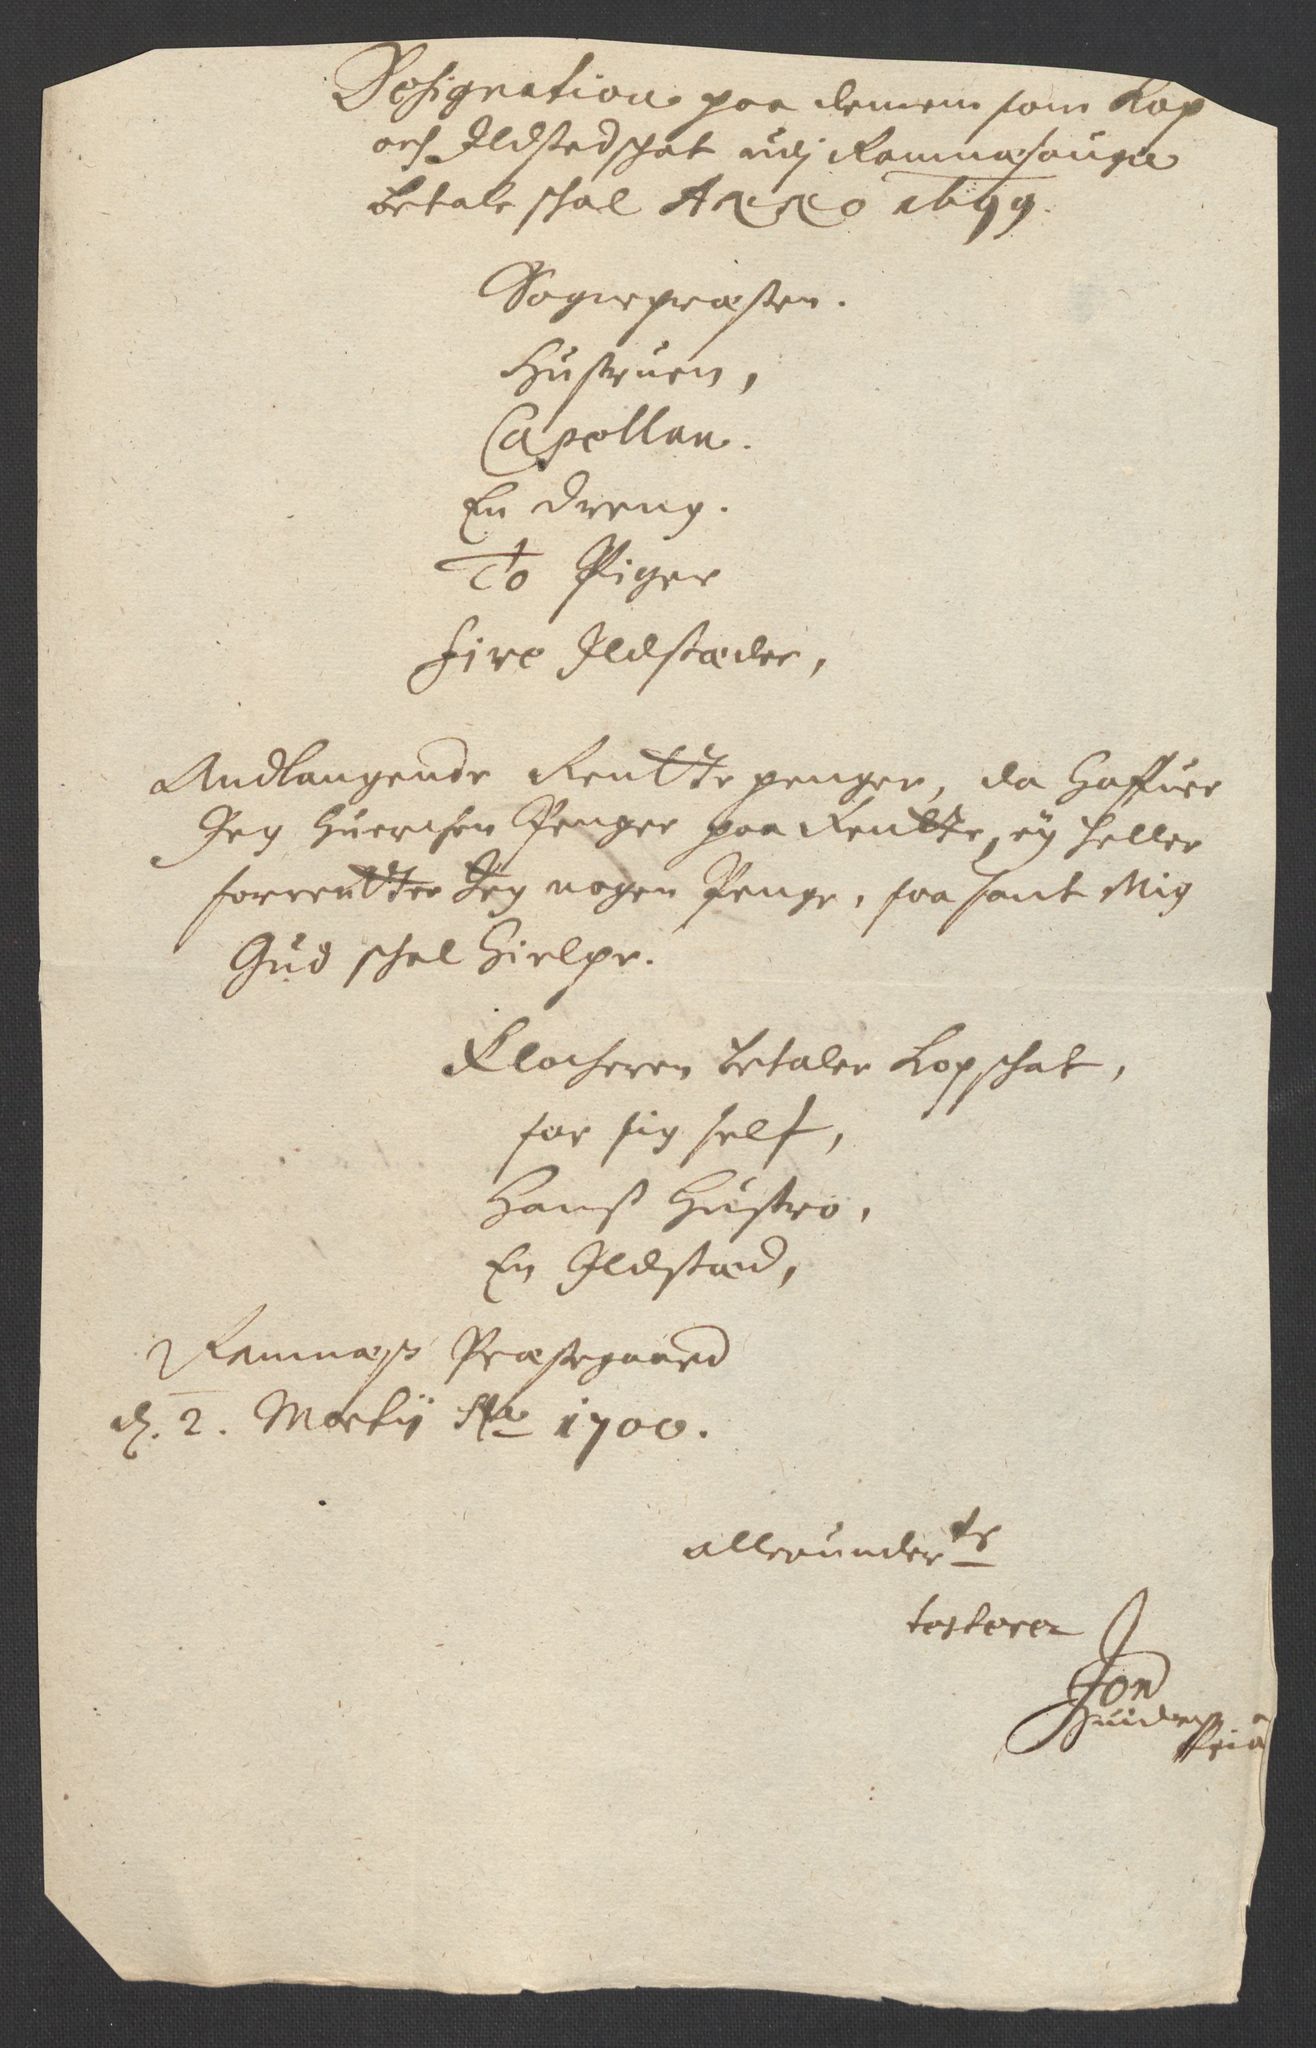 Designation paa dennem som Kop
och Ildstedschat udj Ramnæsougn
betale schal Anno 1699.
Sognepræsten.
Hustruen,
Capellan.
En dreng.
To Piger
Fire Ildstæder,
Andlangende Rentte penger, da haffuer
Jeg huerchen Penger paa Rentte, ey heller
forrentter Jeg nogen Penge, saa sant Mig
Gud schal hielpe.
Klocheren betaler Kopschat,
for sig self,
Hanß Hustro,
En Ildstæd,
Ramnæß Præstegaard
d. 2. Martij Ao 1700.
allerunderte
testerer
Jon